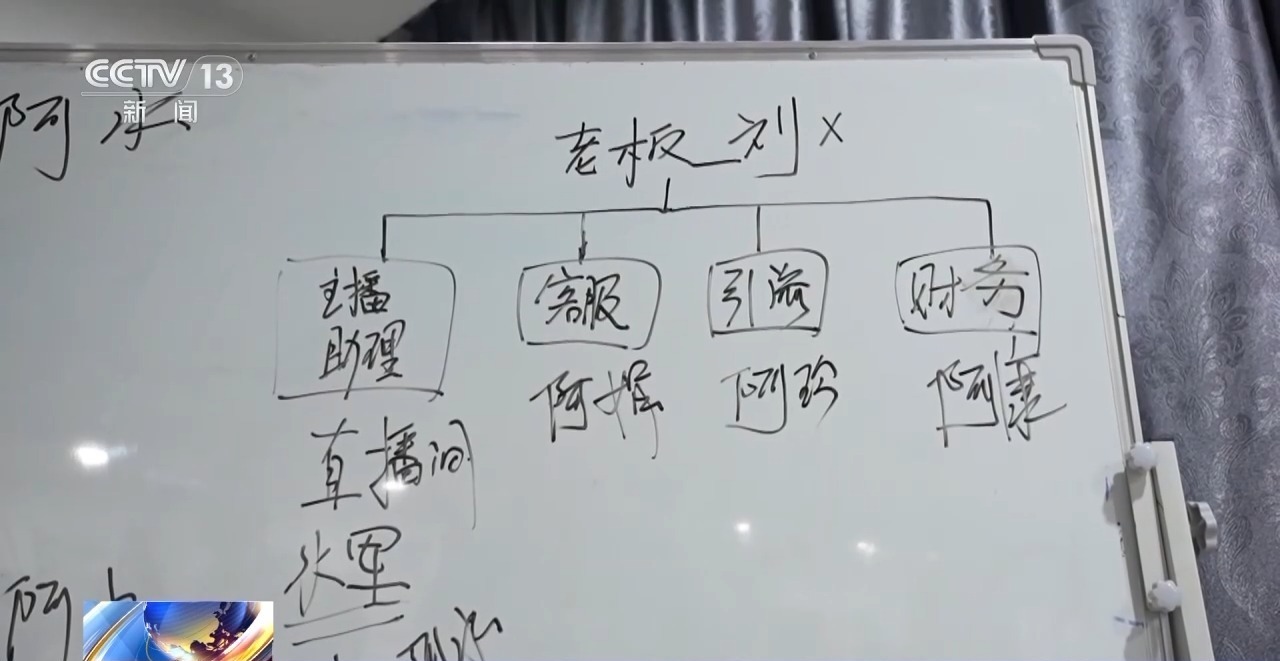 CCTV 13
新闻
阿水
老板 刘X
主播
助理
客服
引流
财务
阿辉
阿珍
阿康
直播间
水军
阿